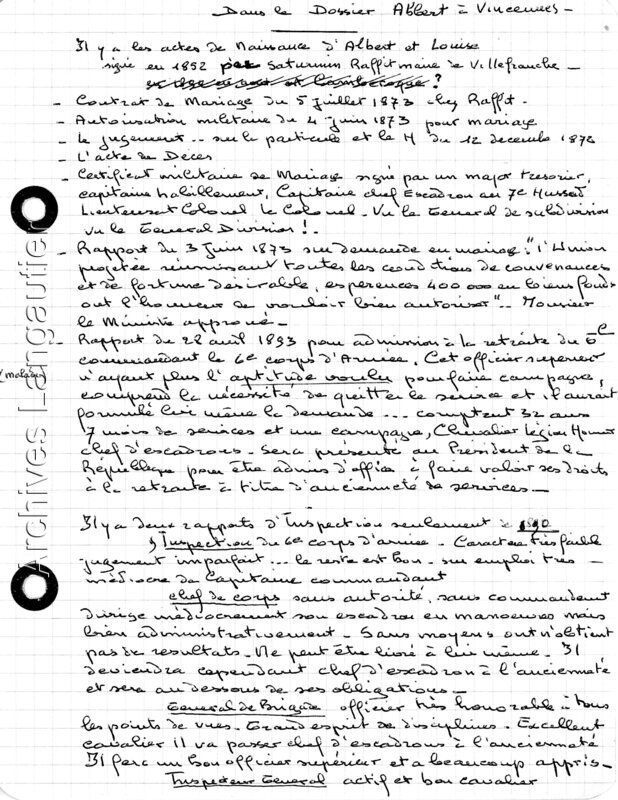 Dans le Dossier Albert à Vincennes -
Il y a les actes de Naissance d'Albert et Louise
signé en 1852 par Saturnin Raffit maire de Villefranche -
?
- Contrat de Mariage du 5 Juillet 1873 chez Raffit -
- Autorisation militaire du 4 juin 1873 pour mariage
- Le jugement .. sur la particule et le H du 12 decembre 1872
- L'acte de Deces
- Certificat militaire de Mariage signé par un major tresorier,
capitaine habillement, Capitaine chef Escadron au 7e Hussard
Lieutenant Colonel le Colonel - Vu le General de subdivision
vu le General Division !-
- Rapport du 3 Juin 1873 sur demande en mariage : "l'Union
projetée réunissant toutes les conditions de convenances
et de fortune désirable, esperences 400 000 en biens fonds
ont l'honneur de vouloir bien autoriser" -- Monsieur
le Ministre approuvé -
Rapport du 28 avril 1893 pour admission à la retraite du
commandant le 6e corps d'Armée. Cet officier superieur
(malade) n'ayant plus l'aptitude voulu pour faire campagne,
comprend la nécéssité de quitter le service et il aurait
formulé lui même la demande ... comptant 32 ans
7 mois de services et une campagne, Chevalier Légion Honneur
chef d'escadrons - Sera présenté au President de la
République pour être admis d'office à faire valoir ses droits
à la retraite à titre d'ancienneté de services -
Il y a deux rapports d'Inspection seulement de 1890
Inspection du 6e corps d'armée - Caractère très faible
jugement imparfait ... le reste est bon - son emploi très
médiocre de Capitaine commandant
chef de corps sans autorité, sans commandement
dirige médiocrement son escadron en manoeuvres mais
bien administrativement - Sans moyens ont n'obtient
pas de resultats - Ne peut être livré à lui même - Il
deviendra cependant chef d'escadron à l'ancienneté
et sera au dessous de ses obligations -
General de Brigade officier très honorable à tous
les points de vues - Grand esprit de disciplines - Excellent
cavalier il va passer chef d'escadrons à l'ancienneté
Il fera un bon officier supérieur et a beaucoup appris -
Inspecteur General actif et bon cavalier
Archives Langautier